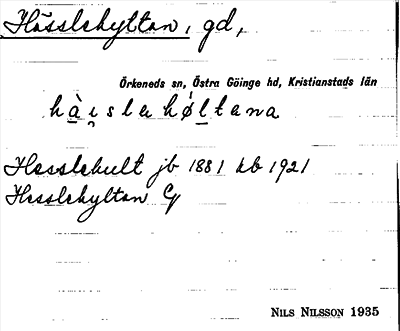 Hässlehyltan, gd,
Örkeneds sn, Östra Göinge hd, Kristianstads län
hàislehøltena
Hesslehult jb 1881 kb 1921
Hesslehyltan
NILS NILSSON 1935